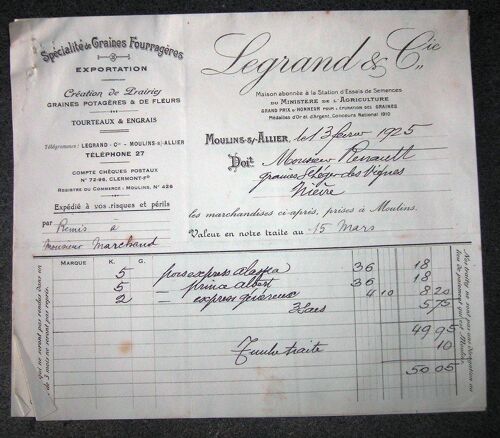 Spécialité de Graines Fourragères
EXPORTATION
Création de Prairies
GRAINES POTAGÈRES & DE FLEURS
TOURTEAUX & ENGRAIS
Télégrammes : LEGRAND - Cie - MOULINS-s/-ALLIER
TÉLÉPHONE 27
COMPTE CHÈQUES POSTAUX
N° 72-96, CLERMONT-Fd
REGISTRE DU COMMERCE : MOULINS, N° 426
Expédié à vos risques et périls
par Remis à
Monsieur Marchand
Legrand & Cie
Maison abonnée à la Station d'Essais de Semences
DU MINISTÈRE DE L'AGRICULTURE
GRAND PRIX D'HONNEUR POUR L'ÉPURATION DES GRAINES
Médailles d'Or et d'Argent, Concours National 1910
MOULINS-s/-ALLIER, le 13 février 1925
Doit Monsieur Renault
graines St Léger des Vignes
Nièvre
les marchandises ci-après, prises à Moulins.
Valeur en notre traite au 15 Mars
MARQUE K. G.
5 pois express alaska 36 18
5 — prince albert 36 18
2 — express généreux 4 10 8 20
3 sacs 5,75
49 95
Timbre traite 10
50 05